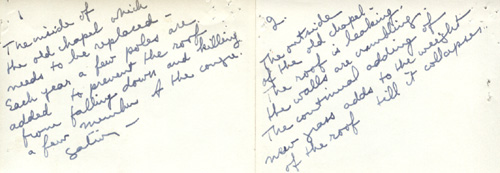 1
The inside of
the old chapel which
needs to be replaced –
Each year a few poles are
added to prevent the roof
from falling down and killing
a few members of the congre-
gation –
2.
The outside
of the old chapel –
The roof is leaking.
the walls are crumbling.
The continual adding of
new grass adds to the weight
of the roof till it collapses.